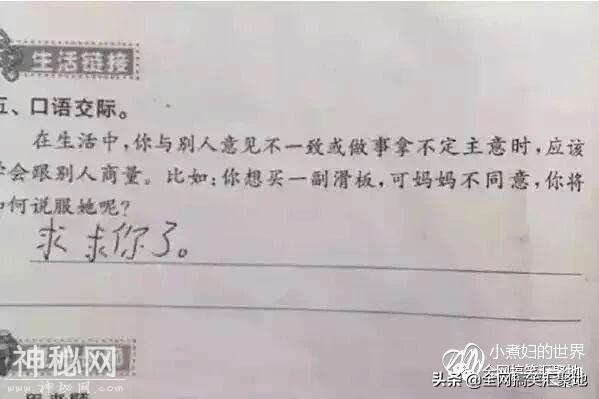 生活链接
五、口语交际。
在生活中,你与别人意见不一致或做事拿不定主意时,应该
学会跟别人商量。比如:你想买一副滑板,可妈妈不同意,你将
如何说服她呢?
求求你了。
小煮妇的世界
神秘网
全网搞笑王聚地
www.shenmiw.com
头条 @全网搞笑聚地